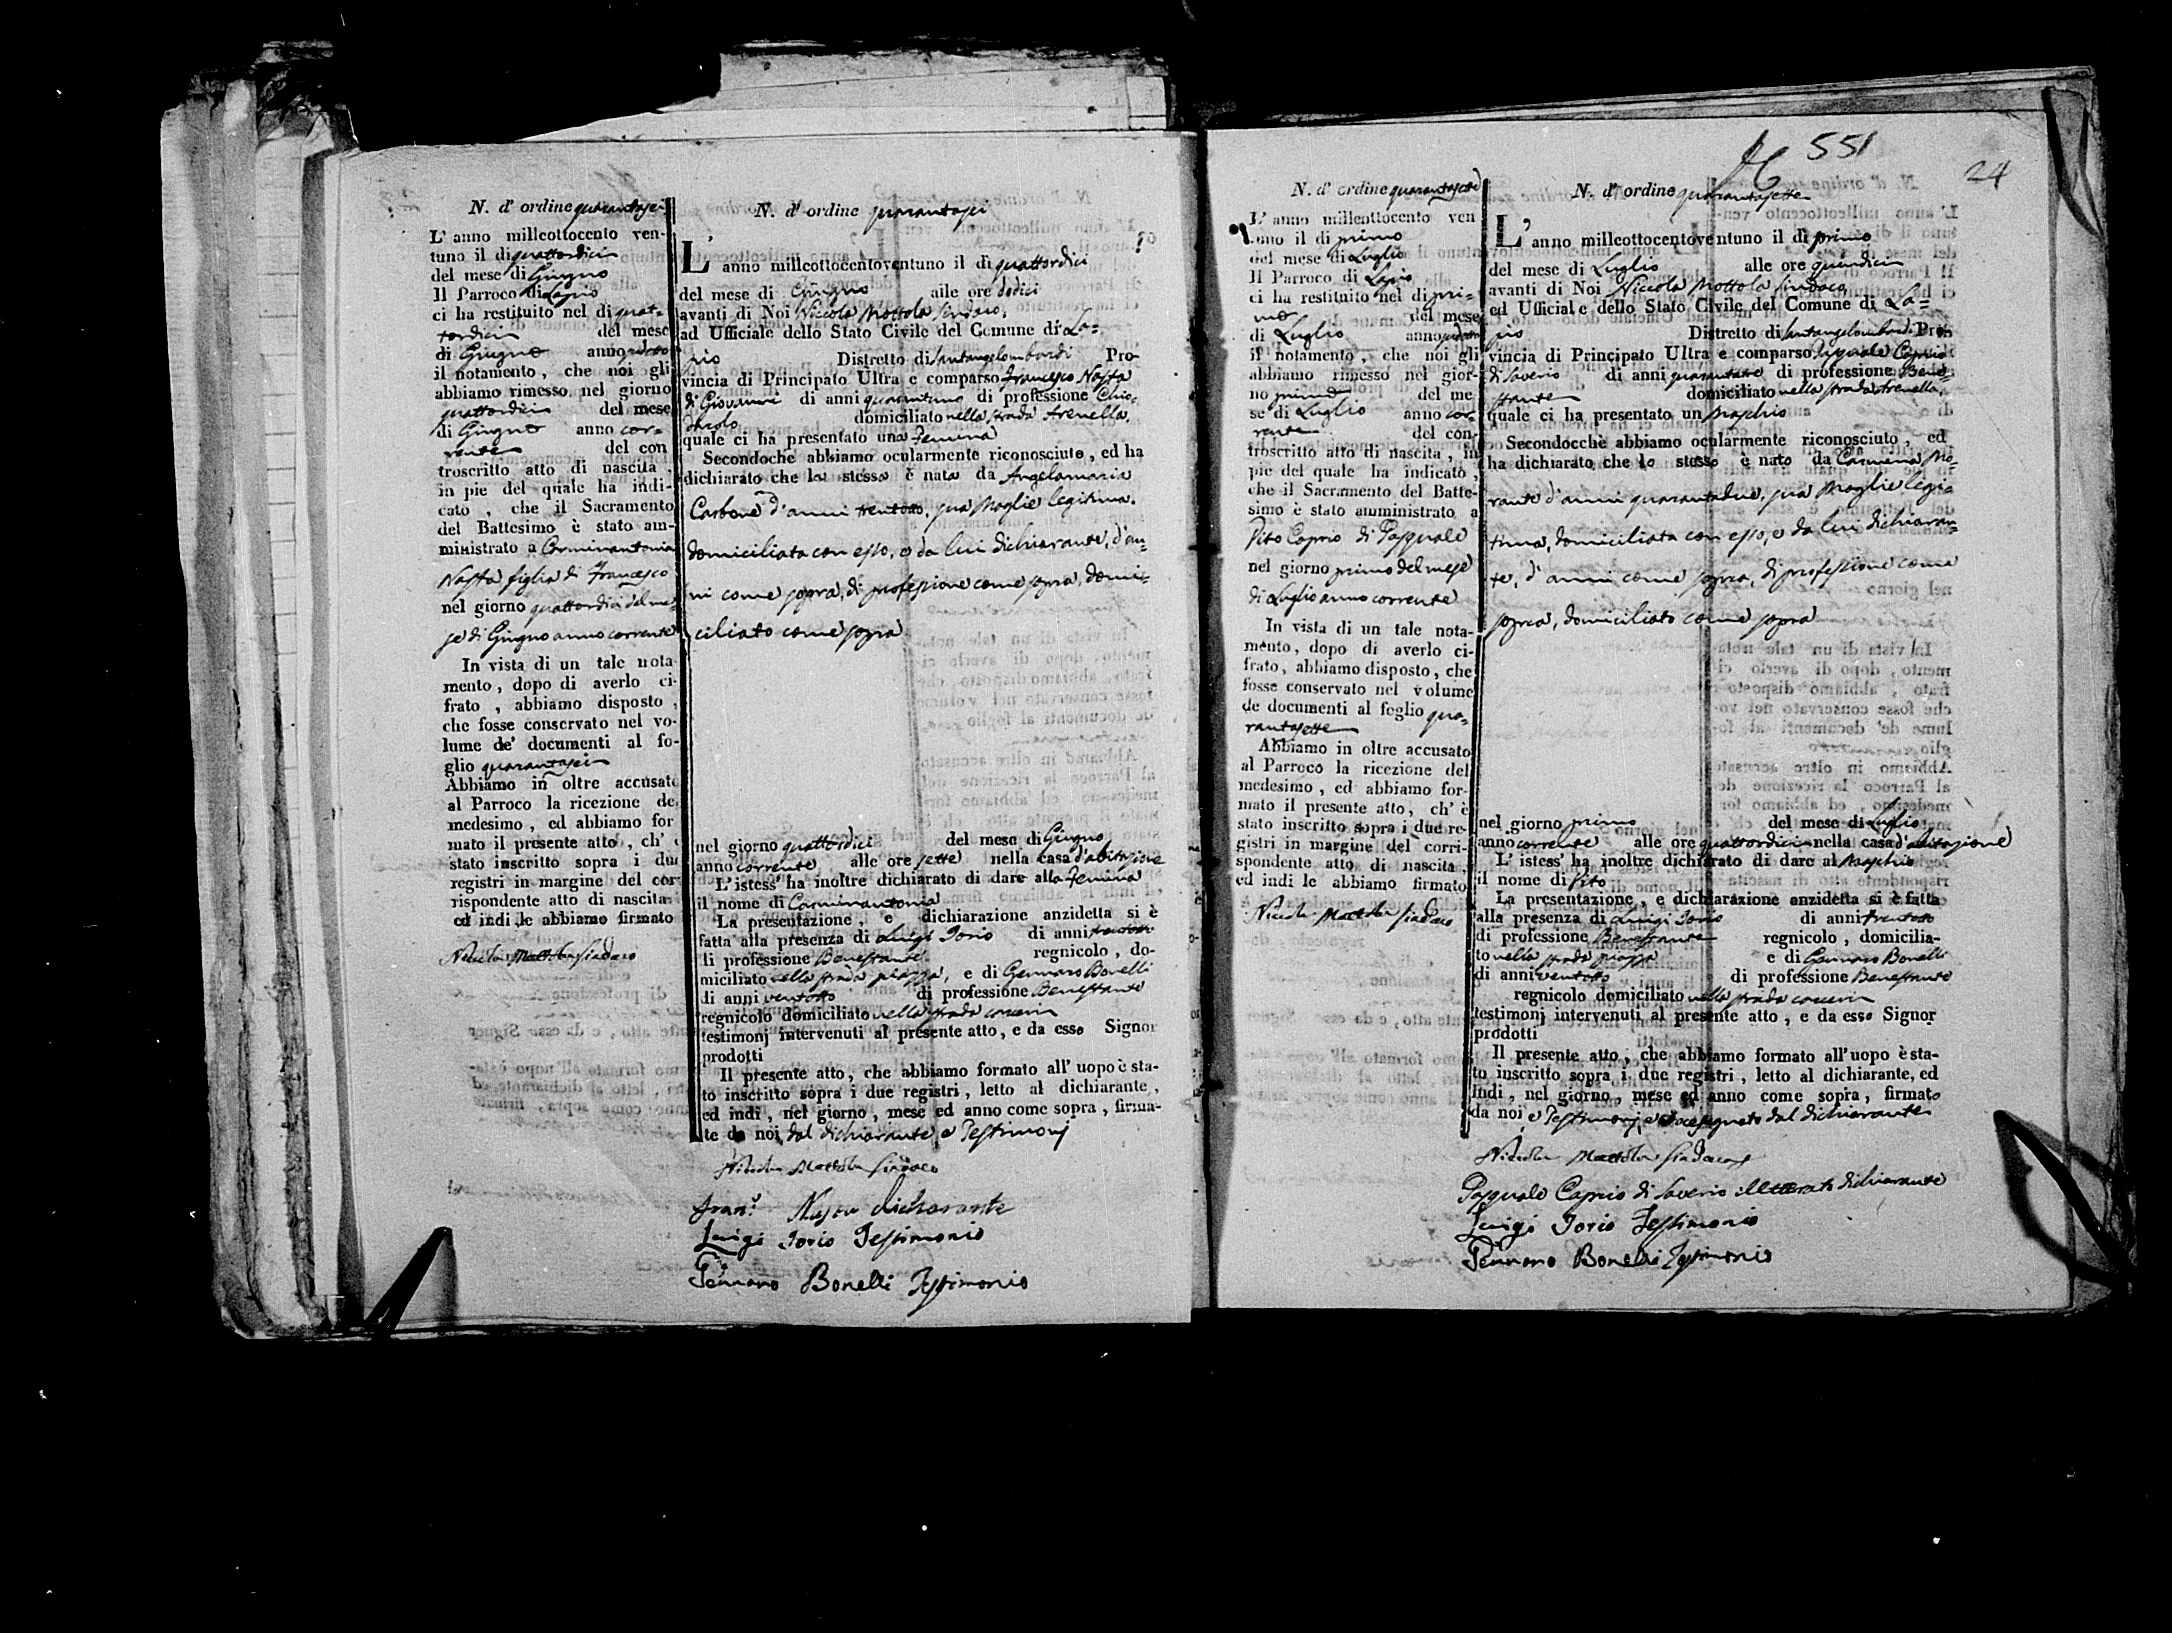 N. d' ordine quarantasei
L' anno milleottocento ven-
tuno il di quattordici
del mese di Giugno
Il Parroco di Lapio
ci ha restituito nel di quat-
tordici del mese
di Giugno anno
il notamento, che noi gli
abbiamo rimesso nel giorno
quattordici del mese
di Giugno anno cor-
rente del con
troscritto atto di nascita,
in pie del quale ha indi-
cato, che il Sacramento
del Battesimo è stato am-
ministrato a Carminantonia
Nasta figlia di Francesco
nel giorno quattordici del me-
se di Giugno anno corrente
In vista di un tale nota-
mento, dopo di averlo ci-
frato, abbiamo disposto,
che fosse conservato nel vo-
lume de' documenti al fo-
glio quarantasei
Abbiamo in oltre accusato
al Parroco la ricezione del
medesimo, ed abbiamo for
mato il presente atto, ch' è
stato inscritto sopra i due
registri in margine del cor
rispondente atto di nascita
ed indi le abbiamo firmato
Niccola Mottola Sindaco
N. d' ordine quarantasei
L' anno milleottocentoventuno il di quattordici
del mese di Giugno alle ore dodici
avanti di Noi Niccola Mottola Sindaco,
ad Ufficiale dello Stato Civile del Comune di La=
pio Distretto di Santangelombardi Pro-
vincia di Principato Ultra e comparso Francesco Nasta
di Giovanni di anni quarantuno di professione
domiciliato nella strada Arenella,
quale ci ha presentato una Femina
Secondochè abbiamo ocularmente riconosciuto, ed ha
dichiarato che la stessa è nata da Angelamaria
Carbone d'anni trentotto, sua Moglie legitima,
domiciliata con esso, e da lui dichiarante, d'an-
ni come sopra, di professione come sopra, domi-
ciliato come sopra
nel giorno quattordici del mese di Giugno
anno corrente alle ore sette nella casa d'abitazione
L'istess' ha inoltre dichiarato di dare alla Femina
il nome di Carminantonia
La presentazione, e dichiarazione anzidetta si è
fatta alla presenza di Luigi Iorio di anni trentotto
di professione Benestante regnicolo, do-
miciliato nella strada piazza, e di Gennaro Bonelli
di anni ventotto di professione Benestante
regnicolo domiciliato nella strada
testimonj intervenuti al presente atto, e da esso Signor
prodotti
Il presente atto, che abbiamo formato all' uopo è sta-
to inscritto sopra i due registri, letto al dichiarante,
ed indi, nel giorno, mese ed anno come sopra, firma-
te da noi, dal dichiarante, e Testimonj
Niccola Mottola Sindaco
Fran.º Nasta dichiarante
Luigi Iorio Testimonio
Gennaro Bonelli Testimonio
551
24
N. d' ordine quarantasette
L' anno milleottocento ven
tuno il di primo
del mese di Luglio
Il Parroco di Lapio
ci ha restituito nel di pri-
mo del mese
di Luglio anno
il notamento, che noi gli
abbiamo rimesso nel gior-
no primo del me
se di Luglio anno cor-
rente del con-
troscritto atto di nascita, in
pie del quale ha indicato,
che il Sacramento del Batte-
simo è stato amministrato a
Vito Caprio di Pasquale
nel giorno primo del mese
di Luglio anno corrente
In vista di un tale nota-
mento, dopo di averlo ci-
frato, abbiamo disposto, che
fosse conservato nel volume
de documenti al foglio qua-
rantasette
Abbiamo in oltre accusato
al Parroco la ricezione del
medesimo, ed abbiamo for-
mato il presente atto, ch' è
stato inscritto sopra i due re-
gistri in margine del corri-
spondente atto di nascita,
ed indi le abbiamo firmato
Niccola Mottola Sindaco
N. d' ordine quarantasette
L' anno milleottocentoventuno il di primo
del mese di Luglio alle ore quindici
avanti di Noi Niccola Mottola Sindaco
ed Ufficiale dello Stato Civile del Comune di La=
pio Distretto di Santangelombardi Pro-
vincia di Principato Ultra e comparso Pasquale Caprio
di Saverio di anni di professione Bene-
stante domiciliato nella strada Arenella,
quale ci ha presentato un Maschio
Secondocchè abbiamo ocularmente riconosciuto, ed
ha dichiarato che lo stesso è nato da Carmena Mo-
rante d'anni quarantadue, sua Moglie legi-
tima, domiciliata con esso, e da lui dichiaran-
te, d'anni come sopra, di professione come
sopra, domiciliato come sopra
nel giorno primo del mese di Luglio
anno corrente alle ore quattordici nella casa d'abitazione
L' istess' ha inoltre dichiarato di dare al Maschio
il nome di Vito
La presentazione, e dichiarazione anzidetta si è fatta
alla presenza di Luigi Iorio di anni trentotto
di professione Benestante regnicolo, domicilia-
to nella strada piazza e di Gennaro Bonelli
di anni ventotto di professione Benestante
regnicolo domiciliato nella strada
testimonj intervenuti al presente atto, e da esso Signor
prodotti
Il presente atto, che abbiamo formato all'uopo è sta-
to inscritto sopra i due registri, letto al dichiarante, ed
Indi, nel giorno, mese ed anno come sopra, firmato
da noi, e Testimonj, e crocesegnato dal dichiarante
Niccola Mottola Sindaco
Pasquale Caprio di Saverio illetterato dichiarante
Luigi Iorio Testimonio
Gennaro Bonelli Testimonio